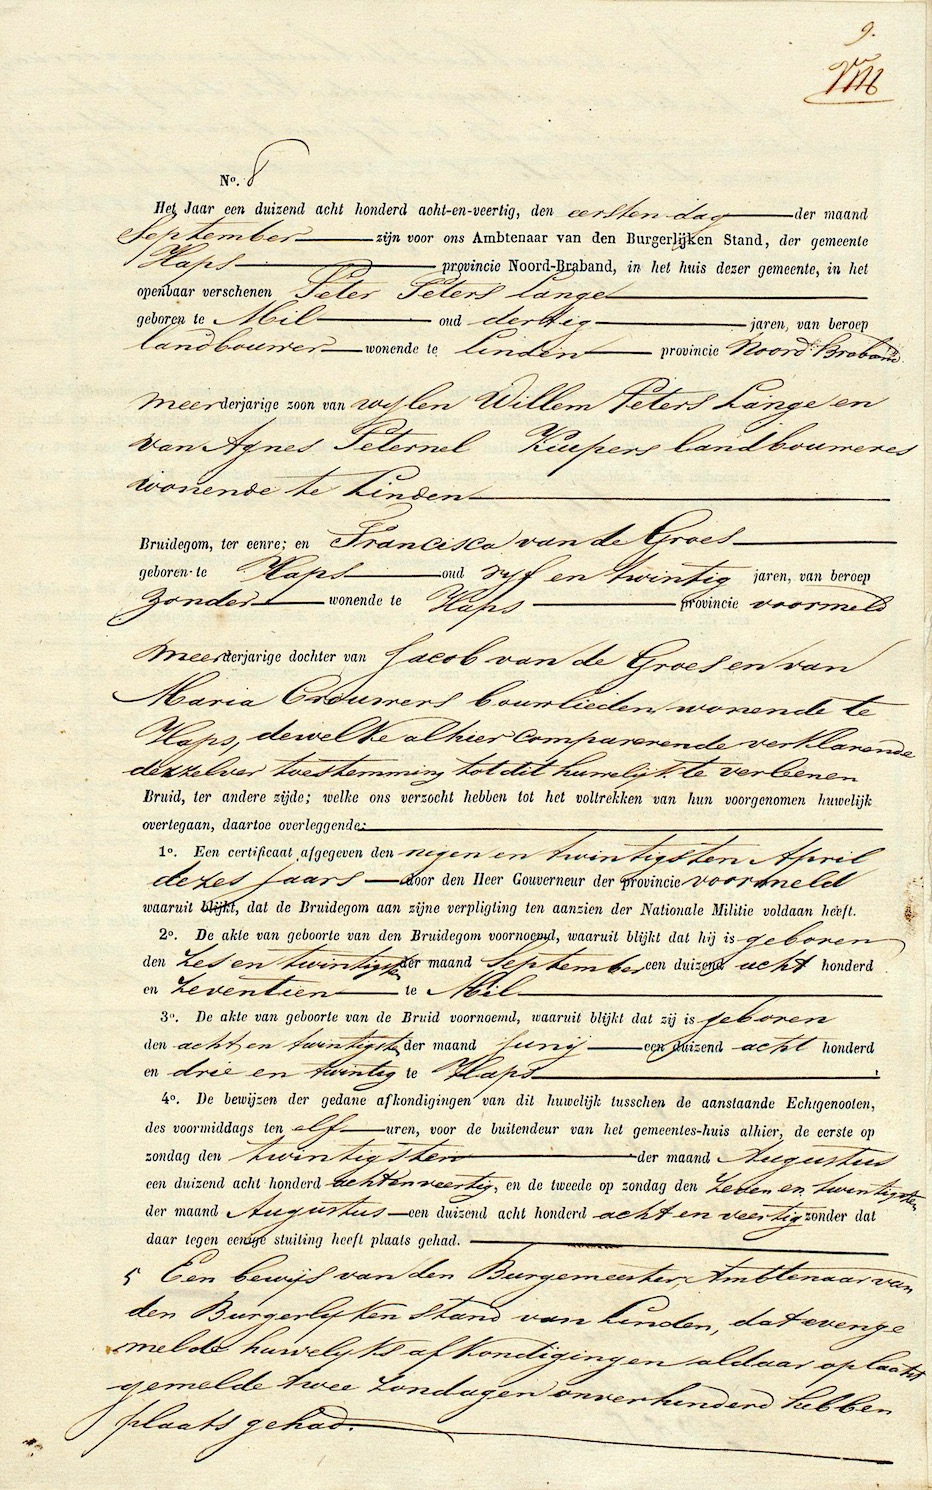 9.
VIII
No. 8
Het Jaar een duizend acht honderd acht-en-veertig, den eersten dag der maand
September zijn voor ons Ambtenaar van den Burgerlijken Stand, der gemeente
Haps provincie Noord-Braband, in het huis dezer gemeente, in het
openbaar verschenen Peter Peters Lange
geboren te Mil oud dertig jaren, van beroep
landbouwer wonende te Linden provincie Noord-Braband
meerderjarige zoon van wylen Willem Peters Lange en
van Agnes Peternel Kuipers landbouweres
wonende te Linden
Bruidegom, ter eenre; en Francisca van de Groes
geboren te Haps oud vyf en twintig jaren, van beroep
Zonder wonende te Haps provincie voormeld
meerderjarige dochter van Jacob van de Groes en van
Maria Crouwers bouwlieden wonende te
Haps, dewelke alhier comparerende verklarende
dezzelver toestemming tot dit huwelijk te verleenen
Bruid, ter andere zijde; welke ons verzocht hebben tot het voltrekken van hun voorgenomen huwelijk
overtegaan, daartoe overleggende:
1o. Een certificaat afgegeven den negen en twintigsten April
dezes Jaars door den Heer Gouverneur der provincie voormeld
waaruit blijkt, dat de Bruidegom aan zijne verpligting ten aanzien der Nationale Militie voldaan heeft.
2o. De akte van geboorte van den Bruidegom voornoemd, waaruit blijkt dat hij is geboren
den Zes en twintigste der maand September een duizend acht honderd
en Zeventien te Mil
3o. De akte van geboorte van de Bruid voornoemd, waaruit blijkt dat zij is geboren
den acht en twintigste der maand Junij een duizend acht honderd
en drie en twintig te Haps
4o. De bewijzen der gedane afkondigingen van dit huwelijk tusschen de aanstaande Echtgenooten,
des voormiddags ten elf uren, voor de buitendeur van het gemeentes-huis alhier, de eerste op
zondag den twintigsten der maand Augustus
een duizend acht honderd achtenveertig, en de tweede op zondag den Zeven en twintigsten
der maand Augustus een duizend acht honderd acht en veertig zonder dat
daar tegen eenige stuiting heeft plaats gehad.
5 Een bewijs van den Burgemeester, Ambtenaar van
den Burgerlyken Stand van Linden, dat evenge
melde huwelyks afkondigingen aldaar op laatst
gemelde twee Zondagen onverhinderd hebben
plaats gehad.